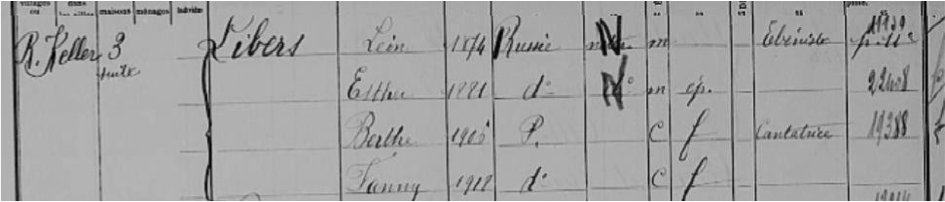 maisons ménages individus
R. Keller 3 Libers Léon 1874 Russie N m Ebéniste patron
suite Esther 1881 do N m ép. 22408
Berthe 1905 P. C f Cantatrice 19388
Fanny 1912 do C f